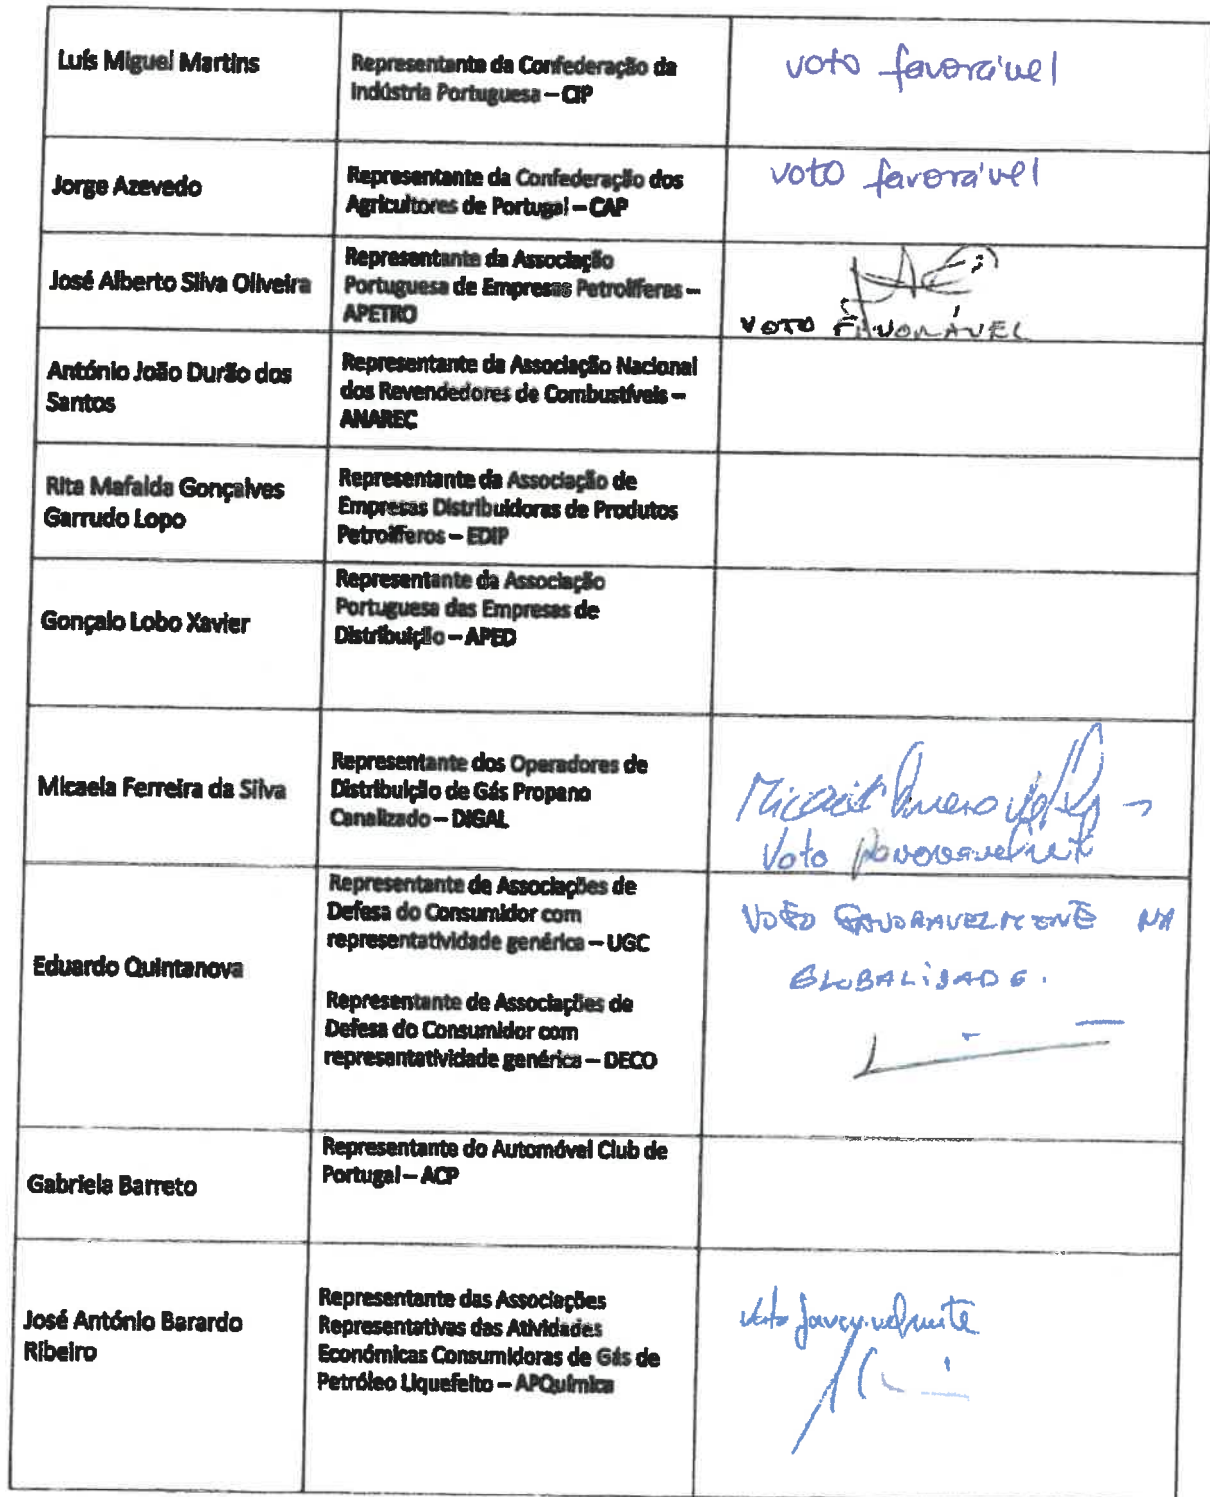 Luís Miguel Martins
Representante da Confederação da
Indústria Portuguesa – CIP
voto favorável
Jorge Azevedo
Representante da Confederação dos
Agricultores de Portugal – CAP
voto favorável
José Alberto Silva Oliveira
Representante da Associação
Portuguesa de Empresas Petrolíferas –
APETRO
VOTO FAVORÁVEL
António João Durão dos
Santos
Representante da Associação Nacional
dos Revendedores de Combustíveis –
ANAREC
Rita Mafalda Gonçalves
Garrudo Lopo
Representante da Associação de
Empresas Distribuidoras de Produtos
Petrolíferos – EDIP
Gonçalo Lobo Xavier
Representante da Associação
Portuguesa das Empresas de
Distribuição – APED
Micaela Ferreira da Silva
Representante dos Operadores de
Distribuição de Gás Propano
Canalizado – DIGAL
Voto favoravelmente
Eduardo Quintanova
Representante de Associações de
Defesa do Consumidor com
representatividade genérica – UGC
Representante de Associações de
Defesa do Consumidor com
representatividade genérica – DECO
VOTO FAVORAVELMENTE NA
GLOBALIDADE.
Gabriela Barreto
Representante do Automóvel Club de
Portugal – ACP
José António Barardo
Ribeiro
Representante das Associações
Representativas das Atividades
Económicas Consumidoras de Gás de
Petróleo Liquefeito – APQuímica
voto favoravelmente